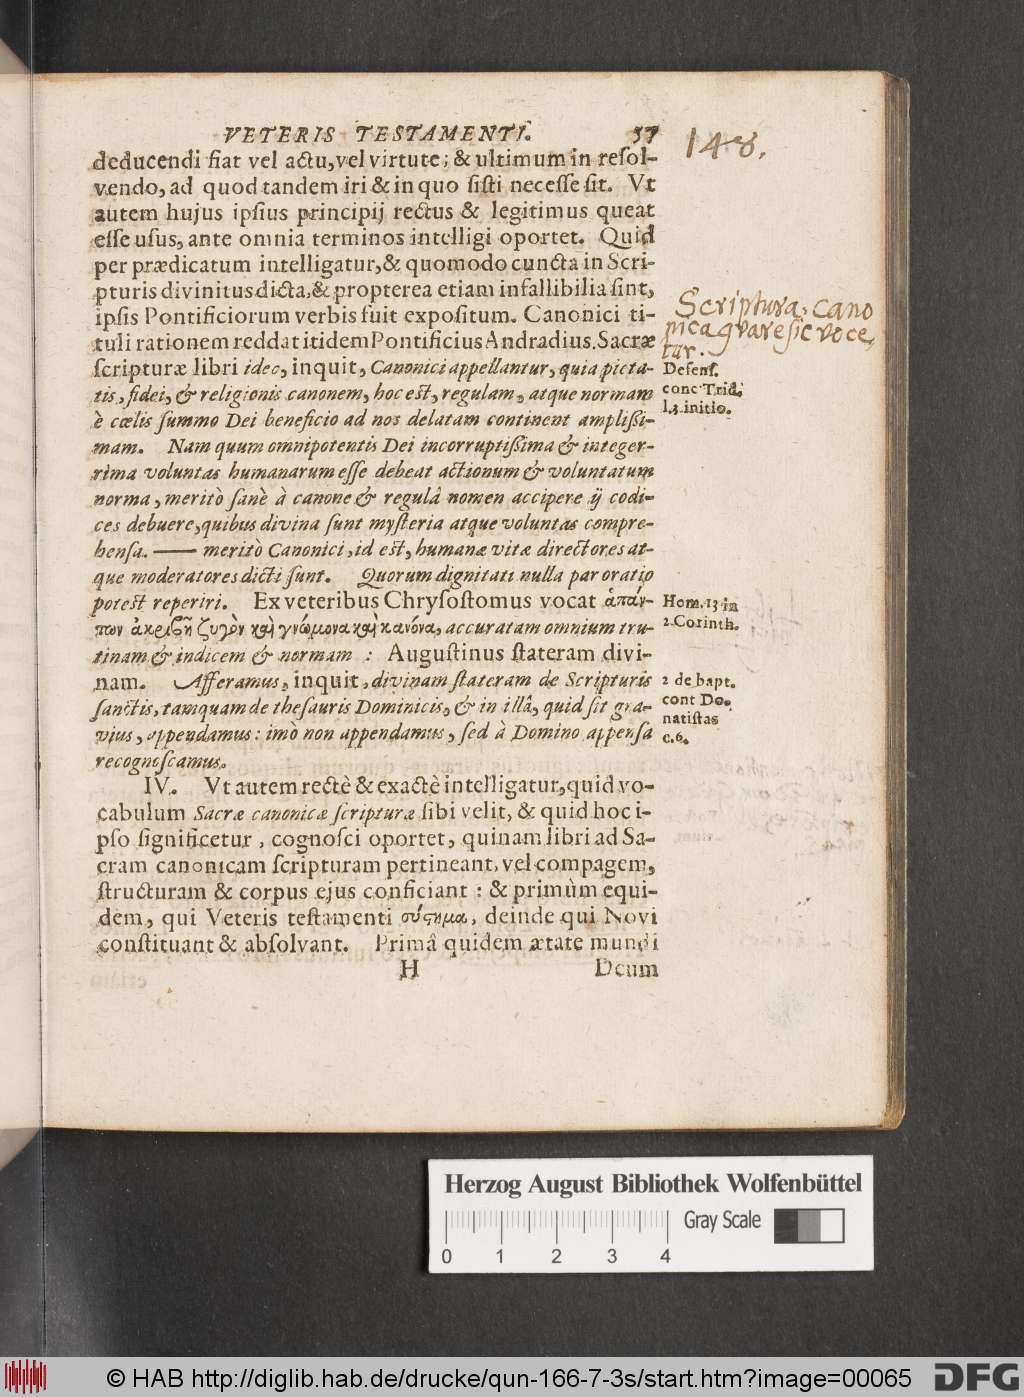 VETERIS TESTAMENTI. 57
148.
deducendi fiat vel actu, vel virtute; & ultimum in reſol-
vendo, ad quod tandem iri & in quo ſiſti neceſſe ſit. Vt
autem hujus ipſius principij rectus & legitimus queat
eſſe uſus, ante omnia terminos intelligi oportet. Quid
per prædicatum intelligatur, & quomodo cuncta in Scri-
pturis divinitus dicta, & propterea etiam infallibilia ſint,
ipſis Pontificiorum verbis fuit expoſitum. Canonici ti-
tuli rationem reddat itidem Pontificius Andradius. Sacræ
ſcripturæ libri ideo, inquit, Canonici appellantur, quia pieta-
tis, fidei, & religionis canonem, hoc est, regulam, atque normam
è cœlis ſummo Dei beneficio ad nos delatam continent ampliſſi-
mam. Nam quum omnipotentis Dei incorruptiſſima & integer-
rima voluntas humanarum eſſe debeat actionum & voluntatum
norma, meritò ſanè à canone & regulâ nomen accipere ij codi-
ces debuere, quibus divina ſunt myſteria atque voluntas compre-
henſa. —— meritò Canonici, id est, humanæ vitæ directores at-
que moderatores dicti ſunt. Quorum dignitati nulla par oratio
potest reperiri. Ex veteribus Chryſoſtomus vocat ἁπάν-
των ἀκριβῆ ζυγὸν καὶ γνώμονα καὶ κανόνα, accuratam omnium tru-
tinam & indicem & normam : Auguſtinus ſtateram divi-
nam. Afferamus, inquit, divinam ſtateram de Scripturis
ſanctis, tamquam de theſauris Dominicis, & in illâ, quid ſit gra-
vius, appendamus: imò non appendamus, ſed à Domino appenſa
recognoſcamus.
IV. Vt autem rectè & exactè intelligatur, quid vo-
cabulum Sacræ canonicæ ſcripturæ ſibi velit, & quid hoc i-
pſo ſignificetur, cognoſci oportet, quinam libri ad Sa-
cram canonicam ſcripturam pertineant, vel compagem,
ſtructuram & corpus ejus conficiant : & primùm equi-
dem, qui Veteris teſtamenti σύστημα, deinde qui Novi
conſtituant & abſolvant. Primâ quidem ætate mundi
H Deum
Scriptura cano
nica quare sic voce,
tur.
Defenſ.
conc Trid.
l.3. initio.
Hom. 13 in
2. Corinth.
2 de bapt.
cont Do-
natiſtas
c.6.
Herzog August Bibliothek Wolfenbüttel
Gray Scale
0 1 2 3 4
© HAB http://diglib.hab.de/drucke/qun-166-7-3s/start.htm?image=00065
DFG